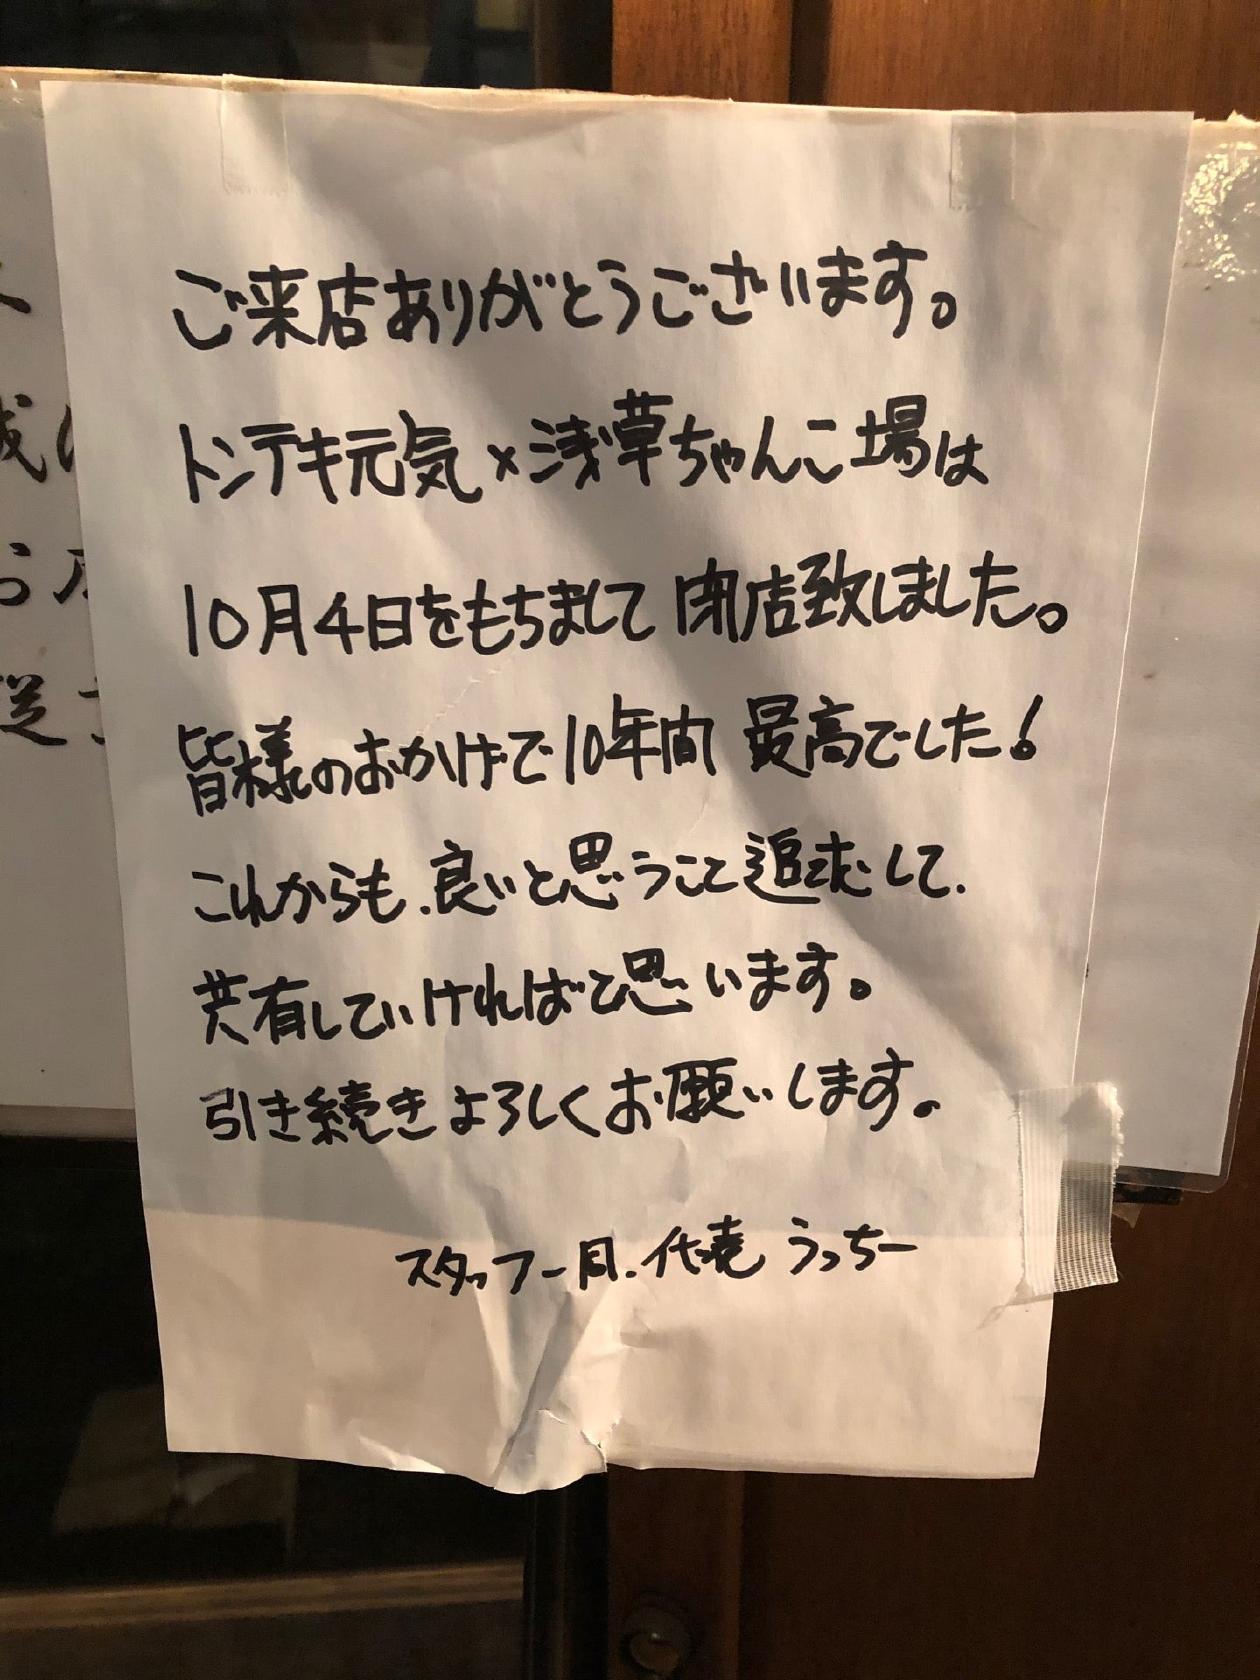 ご来店ありがとうございます。
トンテキ元気×浅草ちゃんこ場は
10月4日をもちまして 閉店致しました。
皆様のおかげで10年間 最高でした!
これからも、良いと思うこと追求して、
共有していければと思います。
引き続きよろしくお願いします。
スタッフ一同、代表 うっちー